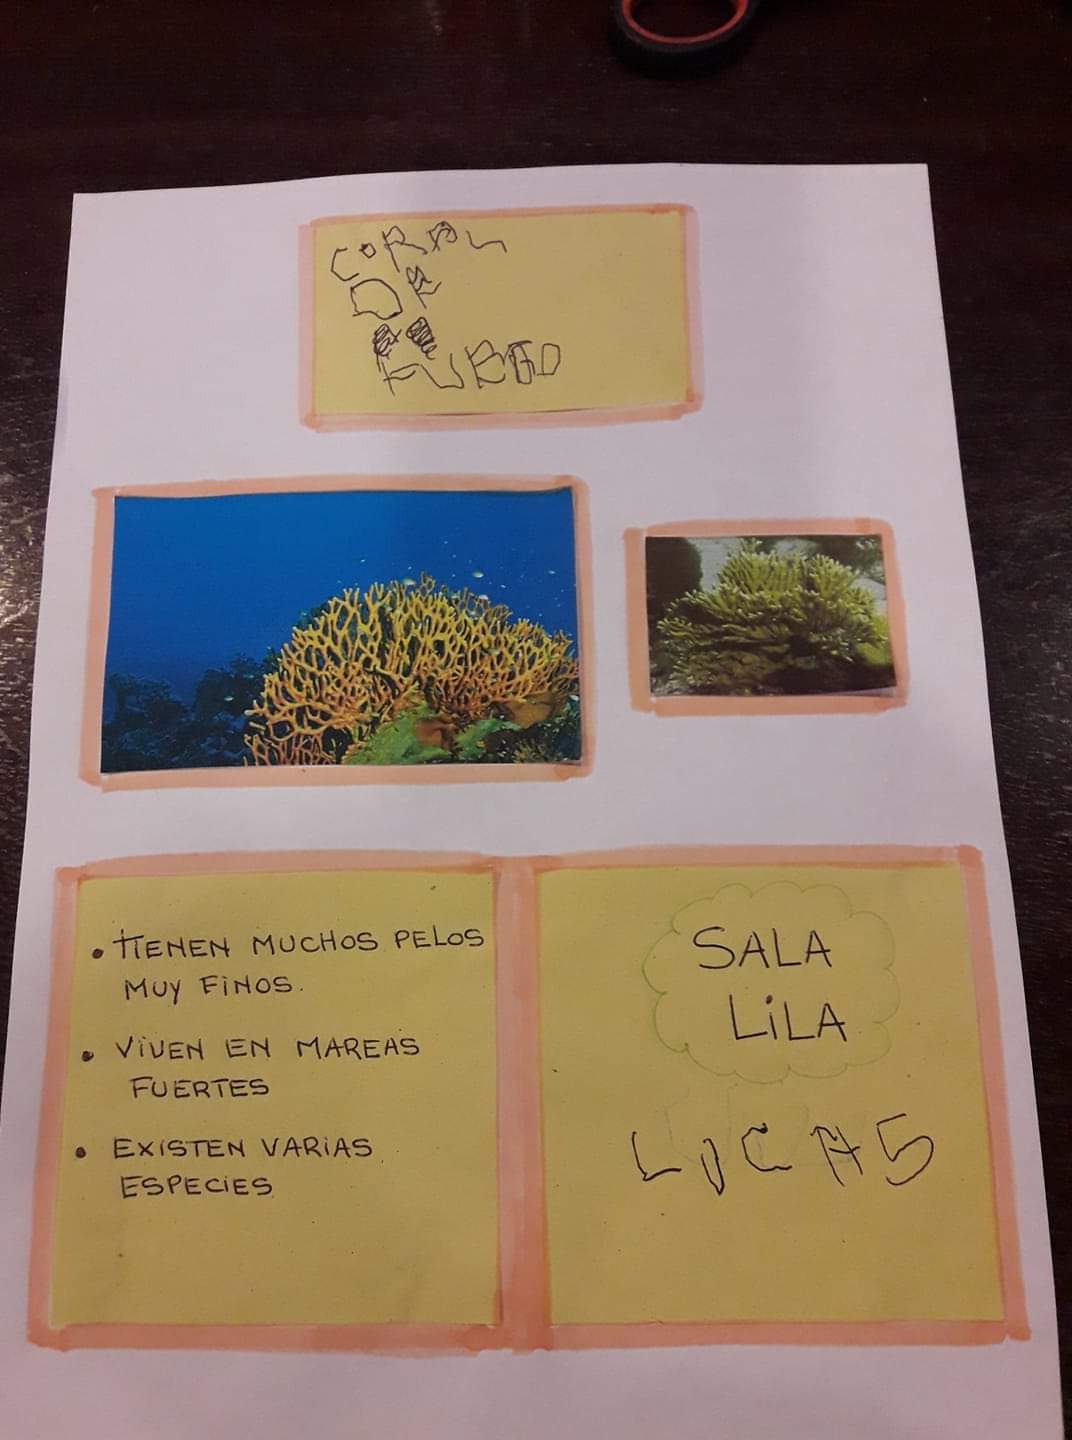 CORAL
DE
FUEGO
• TIENEN MUCHOS PELOS
MUY FINOS.
• VIVEN EN MAREAS
FUERTES
• EXISTEN VARIAS
ESPECIES
SALA
LILA
LUCAS